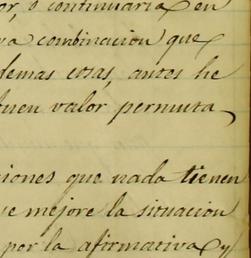 or, o continuaria en
va combinacion que
demas cosas, antes he
buen valor permuta,
iones que nada tienen
se mejore la situacion
por la afirmativa y